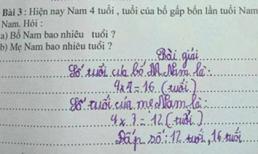 Bài 3 : Hiện nay Nam 4 tuổi , tuổi của bố gấp bốn lần tuổi Nam
Nam. Hỏi :
a) Bố Nam bao nhiêu tuổi ?
b) Mẹ Nam bao nhiêu tuổi ?
Bài giải
Số tuổi của bố Nam là:
4 x 4 = 16 (tuổi)
Số tuổi của mẹ Nam là:
4 x 3 = 12 (tuổi)
Đáp số: 12 tuổi, 16 tuổi